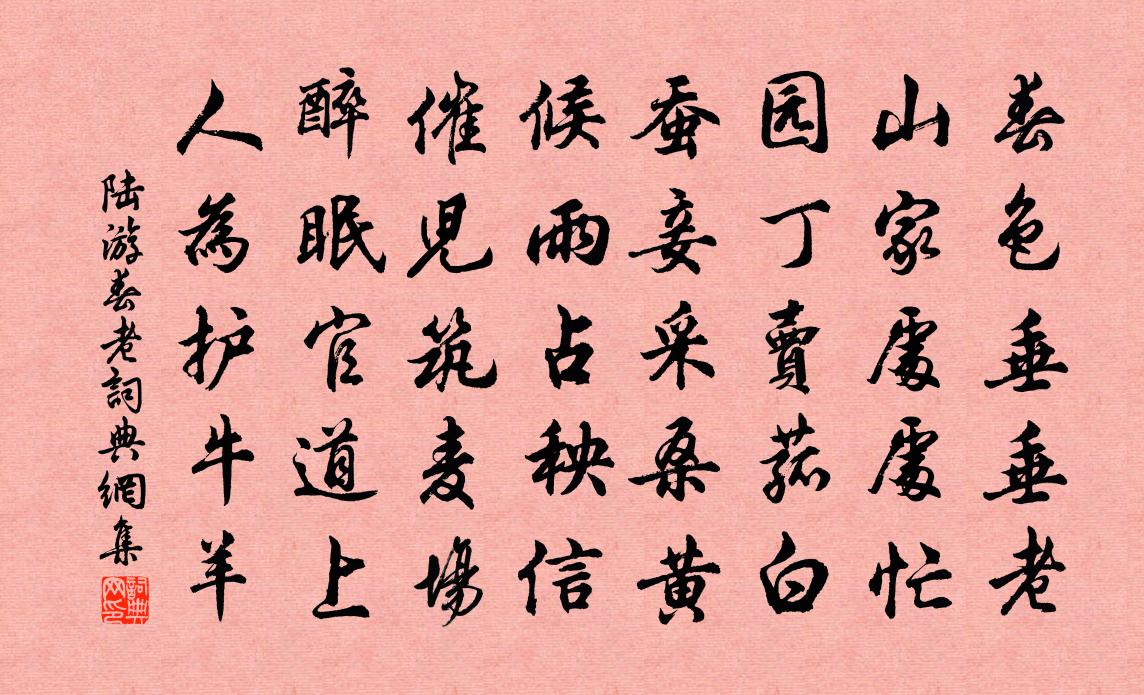 春色垂垂老
山家處處忙
园丁賣菰白
蚕妾采桑黄
候雨占秧信
催児筑麦場
醉眠官道上
人為护牛羊
陆游春老詞典網集
詞典
网印